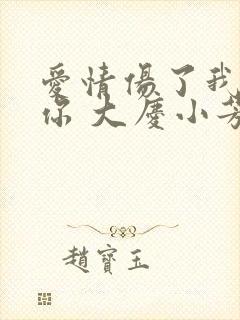 愛情傷了我
你 大慶小芳
趙寶玉